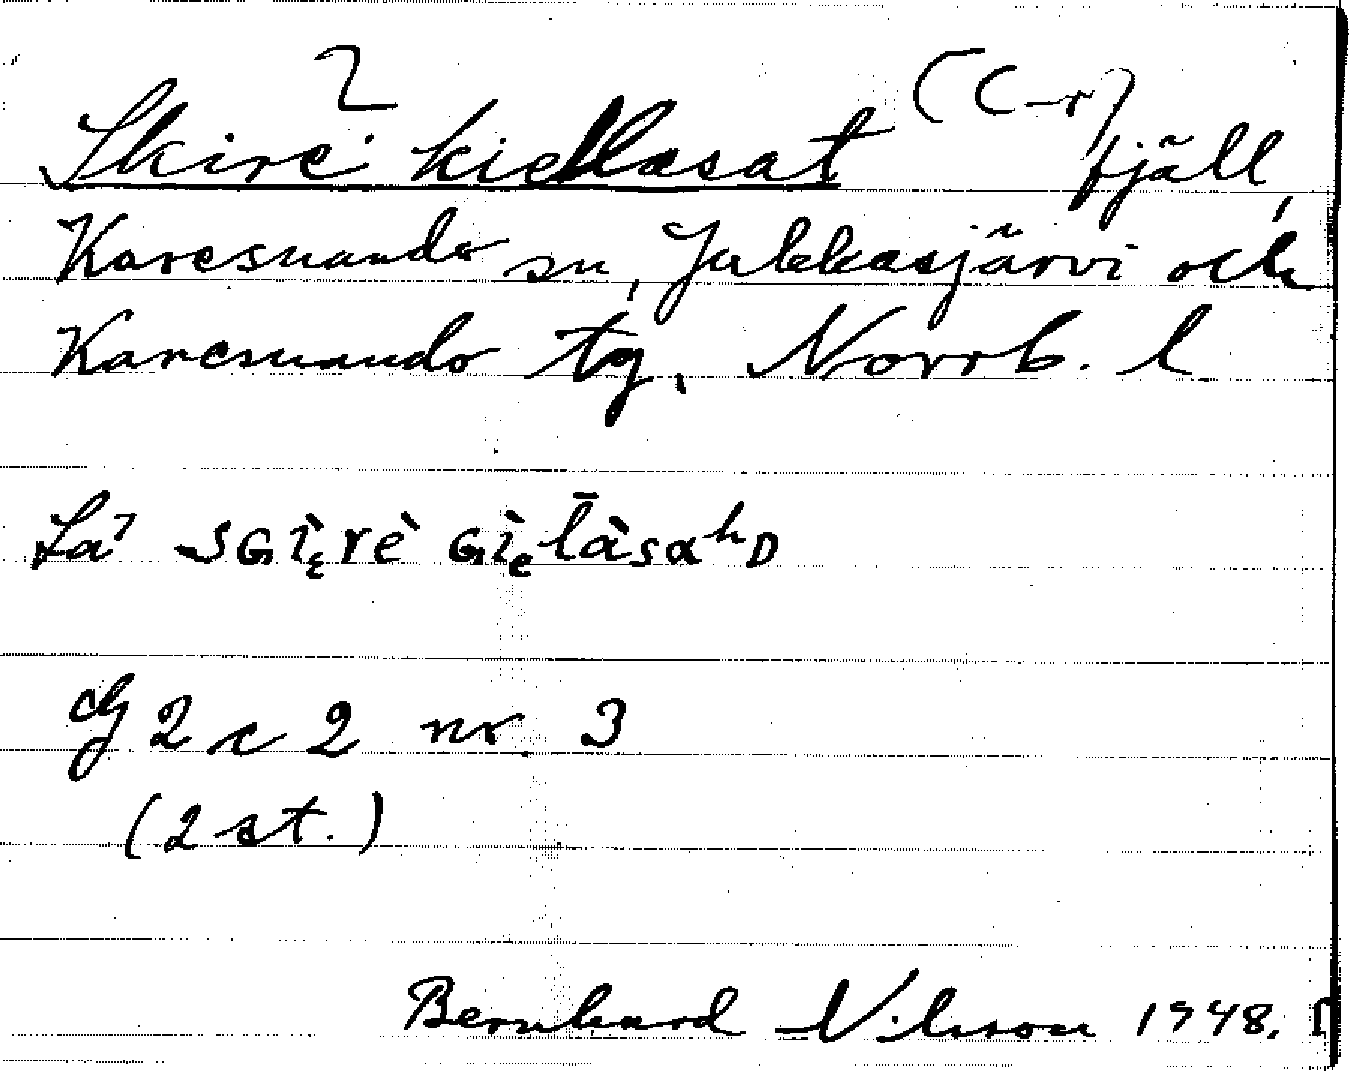 2 (C-r)
Skire kiellasat fjäll,
Karesuando sn, Jukkasjärvi och
Karesuando tg, Norrb. l
La7 sGìęrè Gìel̄àsaʰD
2 c 2 nr 3
(2 st.)
Bernhard Nilsson 1948.